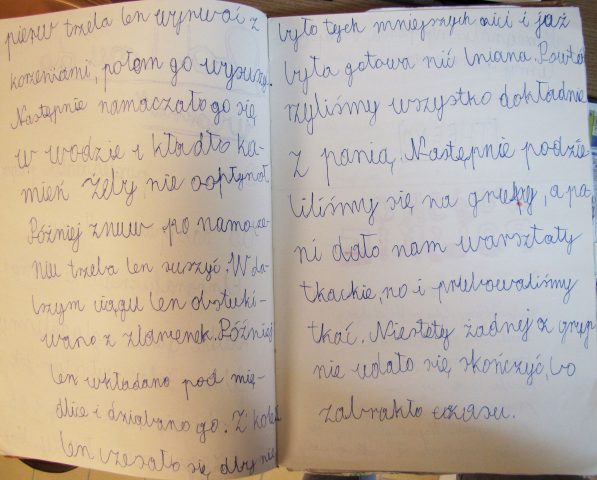 pierw trzeba len wyrwać z
korzeniami, potem go wysuszyć.
Następnie namaczało go się
w wodzie i kładło ka-
mień żeby nie odpłynoł.
Później znuw po namocze-
niu trzeba len suszyć. W da-
lszym ciągu len obstuki-
wano z zdarenek. Później
len wkładano pod mię-
dlice i dziabano go. Z kolei
len czesało się, aby nie
było tych mniejszych nici i już
była gotowa nić lniana. Powtó-
rzyliśmy wszystko dokładnie
z panią. Następnie podzie
liliśmy się na grupy, a pa
ni dało nam warsztaty
tkackie, no i prubowaliśmy
tkać. Niestety żadnej z grup
nie udało się skończyć, bo
zabrakło czasu.